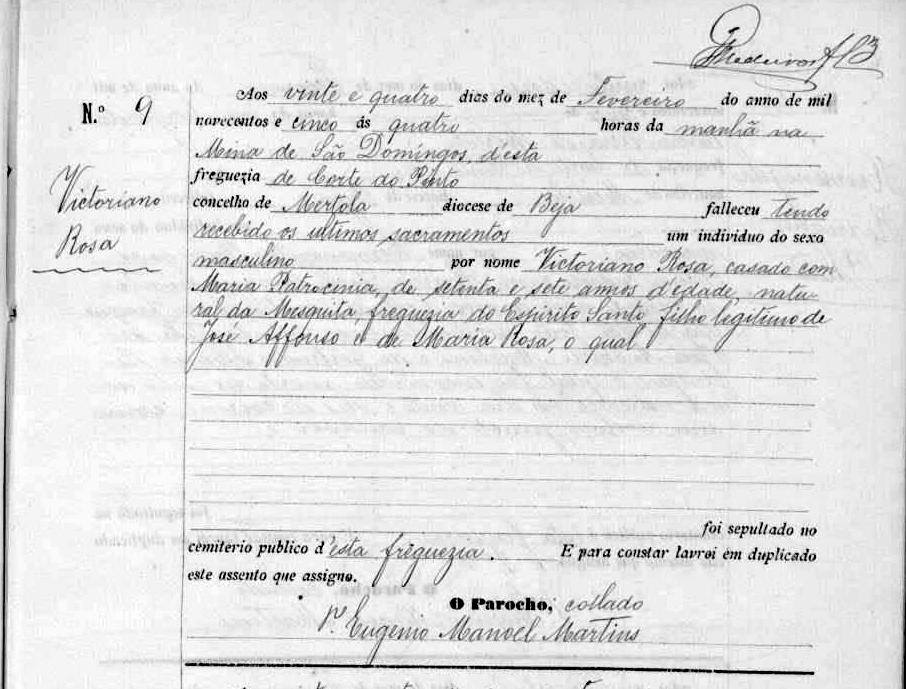 Medeiros
Nº 9
Victoriano
Rosa
Aos vinte e quatro dias do mez de Fevereiro do anno de mil
novecentos e cinco ás quatro horas da manhã na
Mina de São Domingos, d'esta
freguezia de Corte do Pinto
concelho de Mertola diocese de Beja falleceu tendo
recebido os ultimos sacramentos um individuo do sexo
masculino por nome Victoriano Rosa, casado com
Maria Patrocinia, de setenta e sete annos d'edade, natu-
ral da Mesquita, freguezia do Espirito Santo, filho legitimo de
José Affonso e de Maria Rosa, o qual
foi sepultado no
cemiterio publico d'esta freguezia. E para constar lavrei em duplicado
este assento que assigno.
O Parocho, collado
Pe Eugenio Manoel Martins